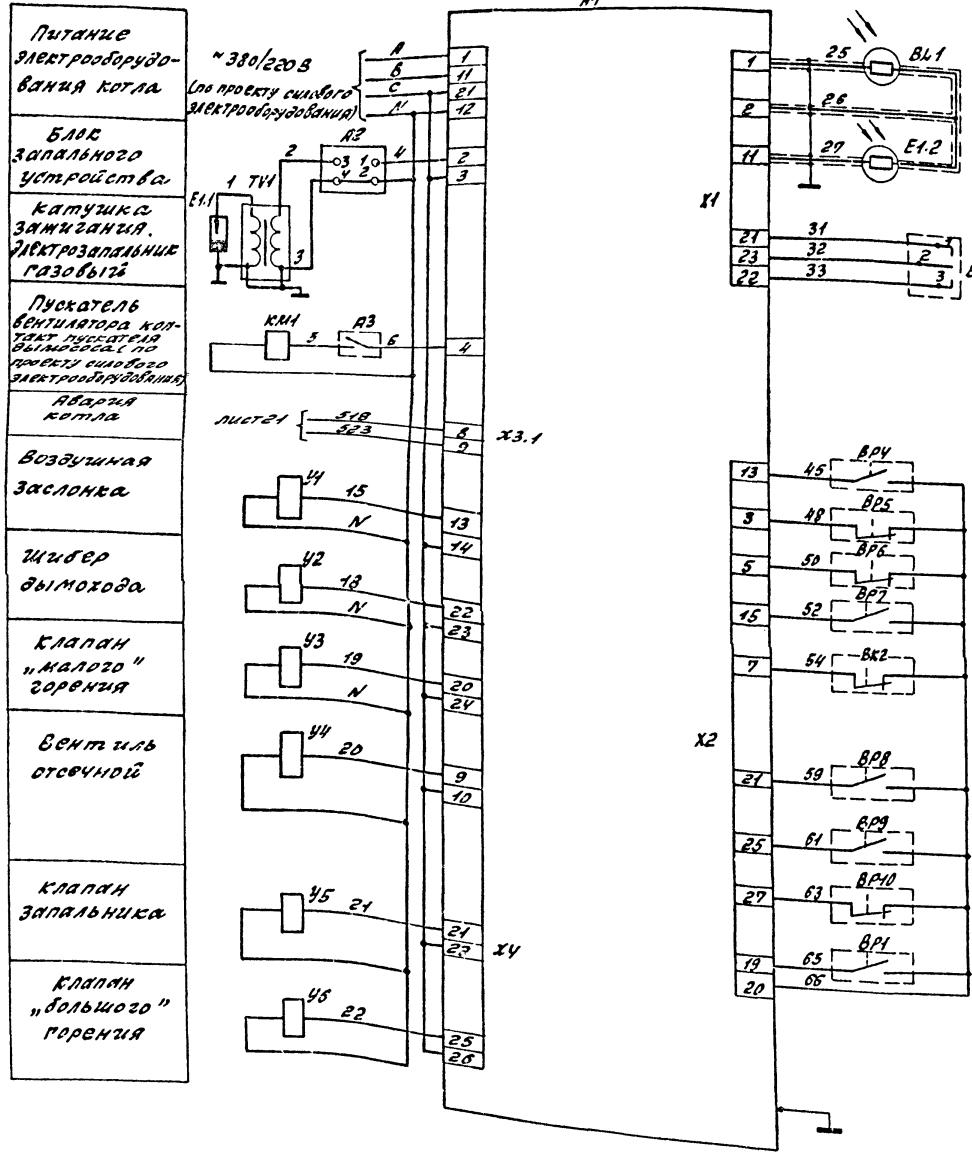 Питание
электрооборудо-
вания котла
Блок
запального
устройства
Катушка
зажигания.
Электрозапальник
газовый
Пускатель
вентилятора кон-
такт пускателя
дымососа (по
проекту силового
электрооборудования)
Авария
котла
Воздушная
заслонка
Шибер
дымохода
Клапан
„малого”
горения
Вентиль
отсечной
Клапан
запальника
Клапан
„большого”
горения
~380/220В
(по проекту силового
электрооборудования)
А
В
С
N
1
11
21
12
А2
3 1
4 2
2
4
2
3
1
TV1
Е1.1
3
КМ1
5
А3
6
4
лист 21
518
523
8
9
Х3.1
У1
15
N
13
14
У2
18
N
22
23
У3
19
N
20
24
У4
20
9
10
У5
21
21
22
Х4
У6
22
25
26
А1
1
25
BL1
2
26
11
27
Е1.2
Х1
21
31
1
23
32
2
22
33
3
13
45
ВР4
3
48
ВР5
5
50
ВР6
15
52
ВР7
7
54
ВК2
Х2
21
59
ВР8
25
61
ВР9
27
63
ВР10
19
65
ВР1
20
66